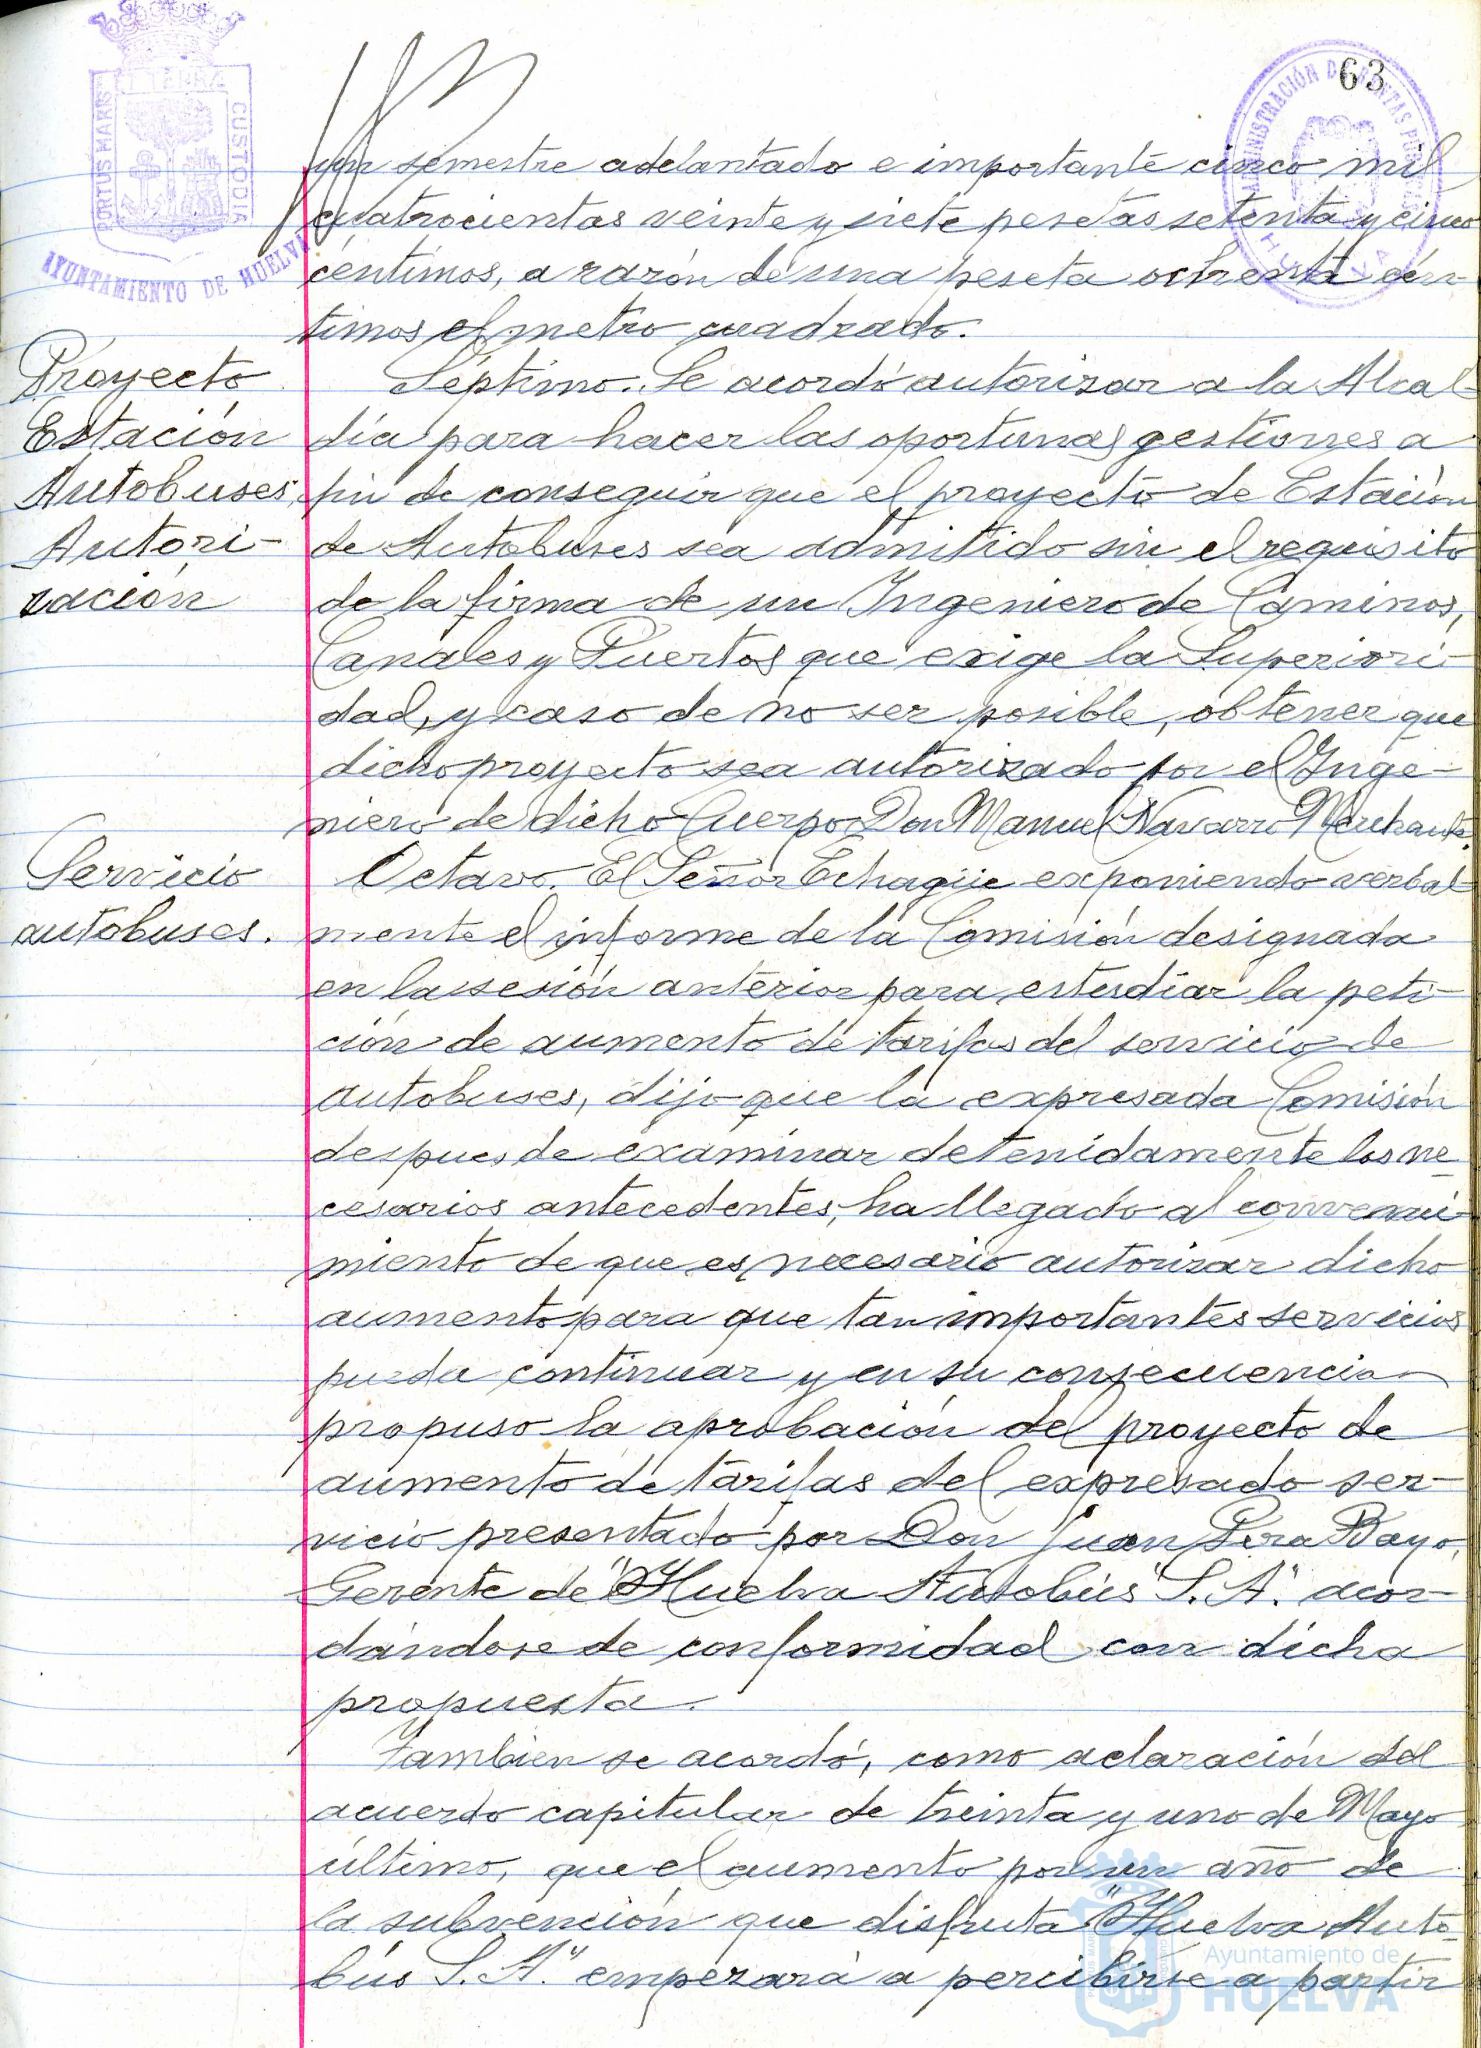 63
PORTUS MARIS
TERRÆ
CUSTODIA
AYUNTAMIENTO DE HUELVA
ADMINISTRACIÓN DE RENTAS PÚBLICAS
HUELVA
un semestre adelantado e importante cinco mil
cuatrocientas veinte y siete pesetas setenta y cinco
céntimos, a razón de una peseta ochenta cén-
timos el metro cuadrado.
Proyecto
Estación
Autobuses.
Autori-
zación
Séptimo. Se acordó autorizar a la Alcal-
día para hacer las oportunas gestiones a
fin de conseguir que el proyecto de Estación
de Autobuses sea admitido sin el requisito
de la firma de un Ingeniero de Caminos,
Canales y Puertos que exige la Superiori-
dad, y caso de no ser posible, obtener que
dicho proyecto sea autorizado por el Inge-
niero de dicho Cuerpo Don Manuel Navarro Merchante.
Servicio
autobuses.
Octavo. El Señor Echagüe exponiendo verbal-
mente el informe de la Comisión designada
en la sesión anterior para estudiar la peti-
ción de aumento de tarifas del servicio de
autobuses, dijo que la expresada Comisión
despues de examinar detenidamente los ne-
cesarios antecedentes, ha llegado al convenci-
miento de que es necesario autorizar dicho
aumento para que tan importantes servicios
pueda continuar y en su consecuencia
propuso la aprobación del proyecto de
aumento de tarifas del expresado ser-
vicio presentado por Don Juan Pera Bayo,
Gerente de "Huelva Autobús S.A." acor-
dándose de conformidad con dicha
propuesta.
Tambien se acordó, como aclaración del
acuerdo capitular de treinta y uno de Mayo
último, que el aumento por un año de
la subvención que disfruta "Huelva Auto-
bús S.A." empezará a percibirse a partir
Ayuntamiento de
HUELVA